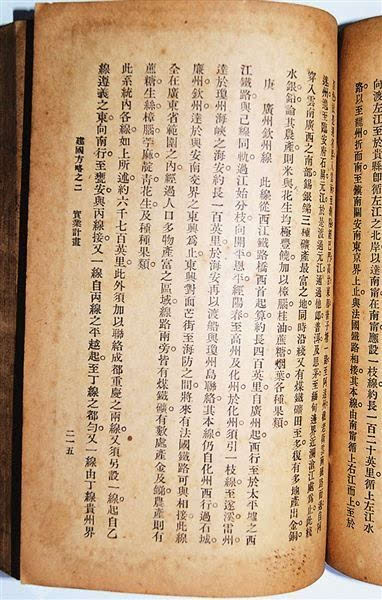 向渡左江至於貴縣即循左江之北岸以達南甯在南甯應設一枝線約長一百二十英里
路以至龍州折而南至鎮南關安南東京界上與法國鐵路相接其本線由南甯循上右江而上至於
穿入雲南廣西之南部錫銀銻三種礦產最富之地同時沿綫又有煤鐵礦田至多復有多地產出金銅
水銀鉛論其農產則米與花生均極豐饒加以樟腦桂油蔗糖烟葉各種果類。
庚　廣州欽州線　此線從西江鐵路橋西首起算約長四百英里自廣州起西行至於太平墟之西
江鐵路與己線同軌過江始分枝向開平恩平經陽春至高州及化州於化州須引一枝線至遂溪雷州
達於瓊州海峽之海安約長一百英里於海安再以渡船與瓊州島聯絡其本線仍自化州西行過石城
廉州欽州達於與安南交界之東興為止東興對面芒街至海防之間將來有法國鐵路可與相接此線
全在廣東省範圍之內經過人口多物產富之區域線路兩旁皆有煤鐵礦有數處產金及銻農產則有
蔗糖生絲樟腦苧麻靛青花生及種種果類。
此系統內各線如上所述約六千七百英里此外須加以聯絡成都重慶之兩線又須另設一線起自乙
線遵義之東向南行至甕安與丙線接又一線自丙線之平越起至丁線之都勻又一線由丁線貴州界
建國方略之二　實業計畫　二一五